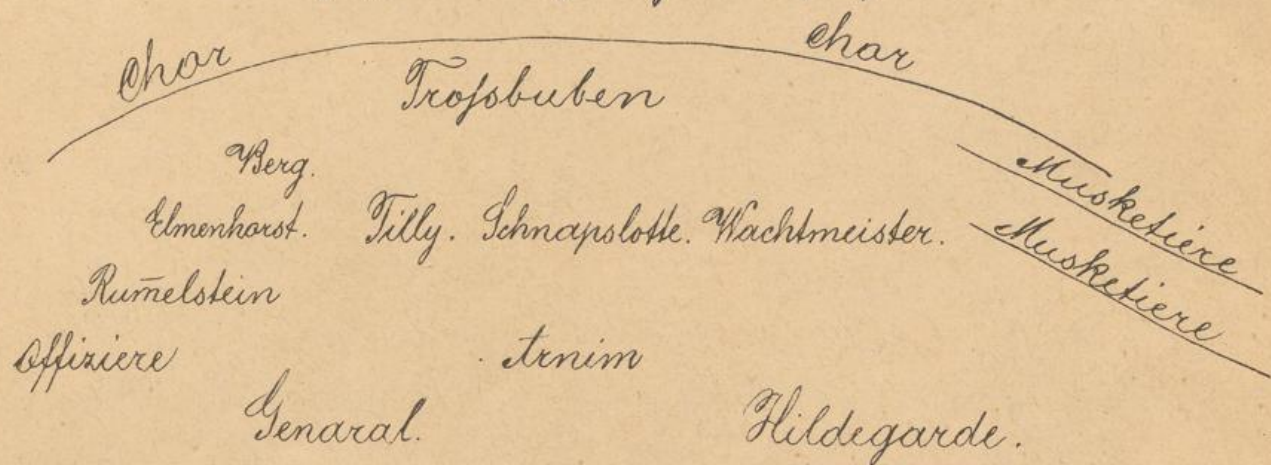 Chor Chor
Troſsbuben
Berg.
Elmenhorst. Tilly. Schnapslotte. Wachtmeister.
Musketiere
Musketiere
Rum̄elstein
Offiziere Arnim
Genaral. Hildegarde.